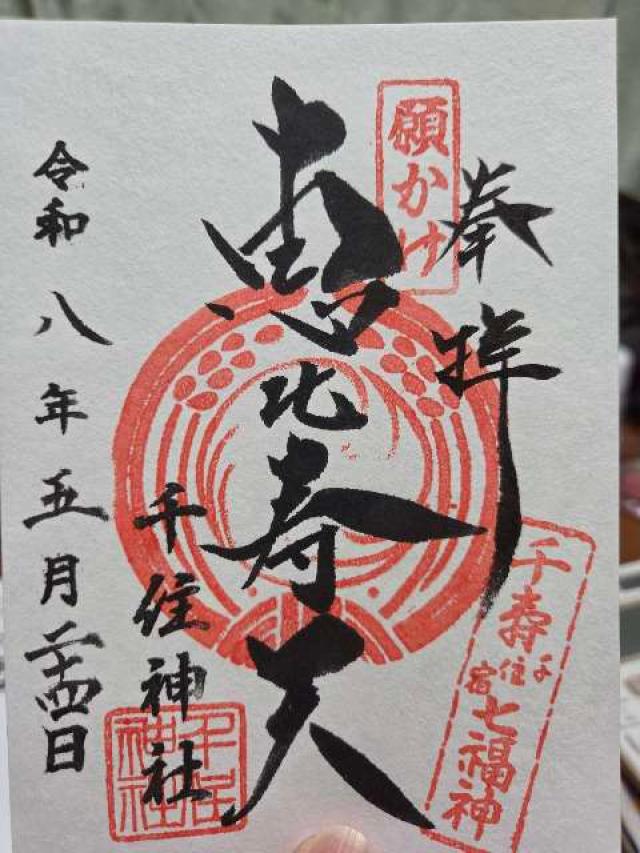 奉拝
願かけ
恵比寿天
千寿
千住宿
七福神
千住神社
千住神社
令和八年五月二十四日